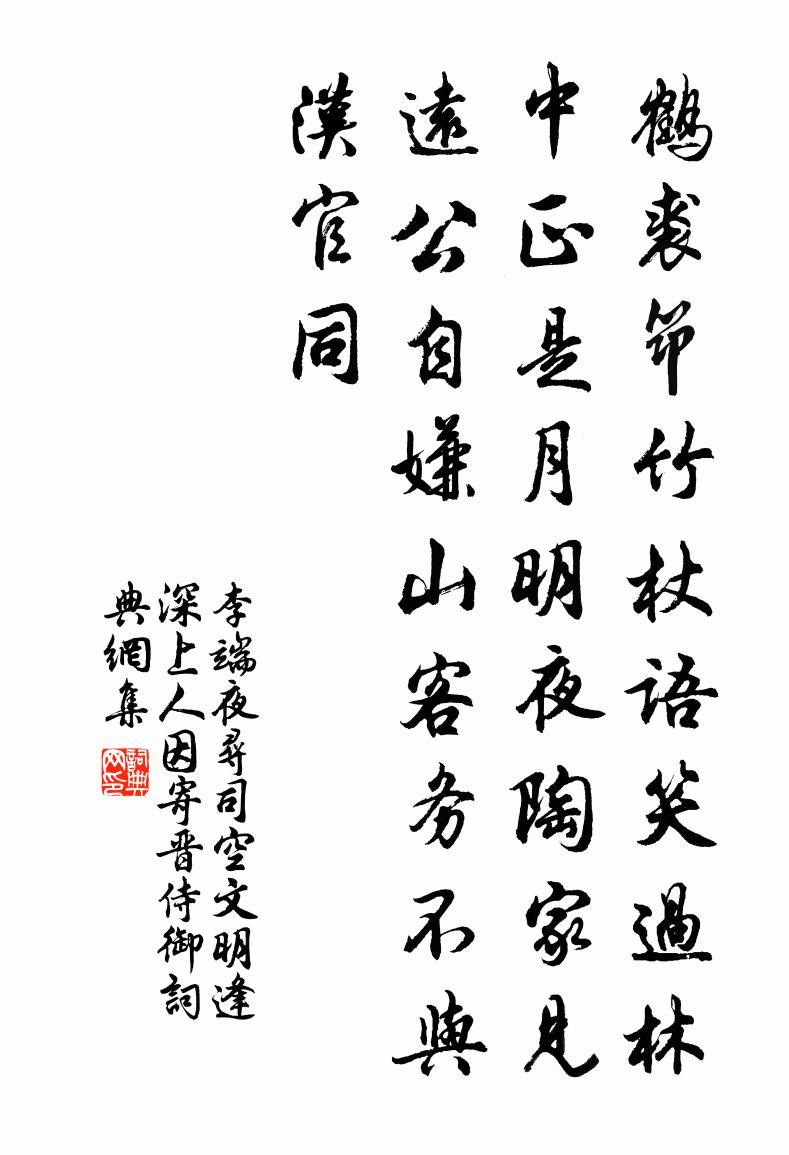 鶴裘筇竹杖語笑過林
中正是月明夜陶家見
遠公自嫌山客务不與
漢官同
李端夜尋司空文明逢
深上人因寄晋侍御詞
典網集
詞典
网印